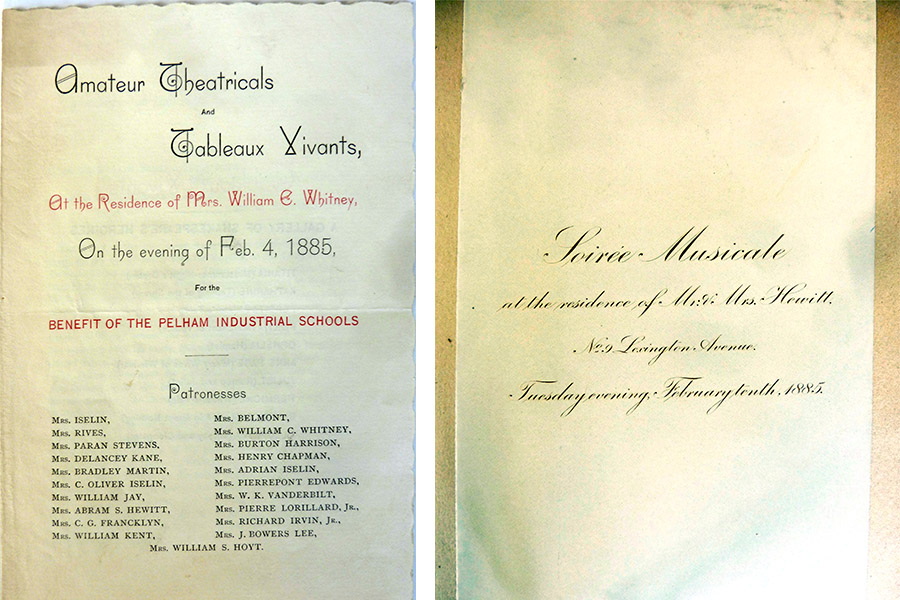 Amateur Theatricals
And
Tableaux Vivants,
At the Residence of Mrs. William C. Whitney,
On the evening of Feb. 4, 1885,
For the
BENEFIT OF THE PELHAM INDUSTRIAL SCHOOLS
Patronesses
MRS. ISELIN,
MRS. RIVES,
MRS. PARAN STEVENS,
MRS. DELANCEY KANE,
MRS. BRADLEY MARTIN,
MRS. C. OLIVER ISELIN,
MRS. WILLIAM JAY,
MRS. ABRAM S. HEWITT,
MRS. C. G. FRANCKLYN,
MRS. WILLIAM KENT,
MRS. BELMONT,
MRS. WILLIAM C. WHITNEY,
MRS. BURTON HARRISON,
MRS. HENRY CHAPMAN,
MRS. ADRIAN ISELIN,
MRS. PIERREPONT EDWARDS,
MRS. W. K. VANDERBILT,
MRS. PIERRE LORILLARD, JR.,
MRS. RICHARD IRVIN, JR.,
MRS. J. BOWERS LEE,
MRS. WILLIAM S. HOYT.
Soirée Musicale
at the residence of Mr. & Mrs. Hewitt.
No. 9 Lexington Avenue.
Tuesday evening, February tenth, 1885.